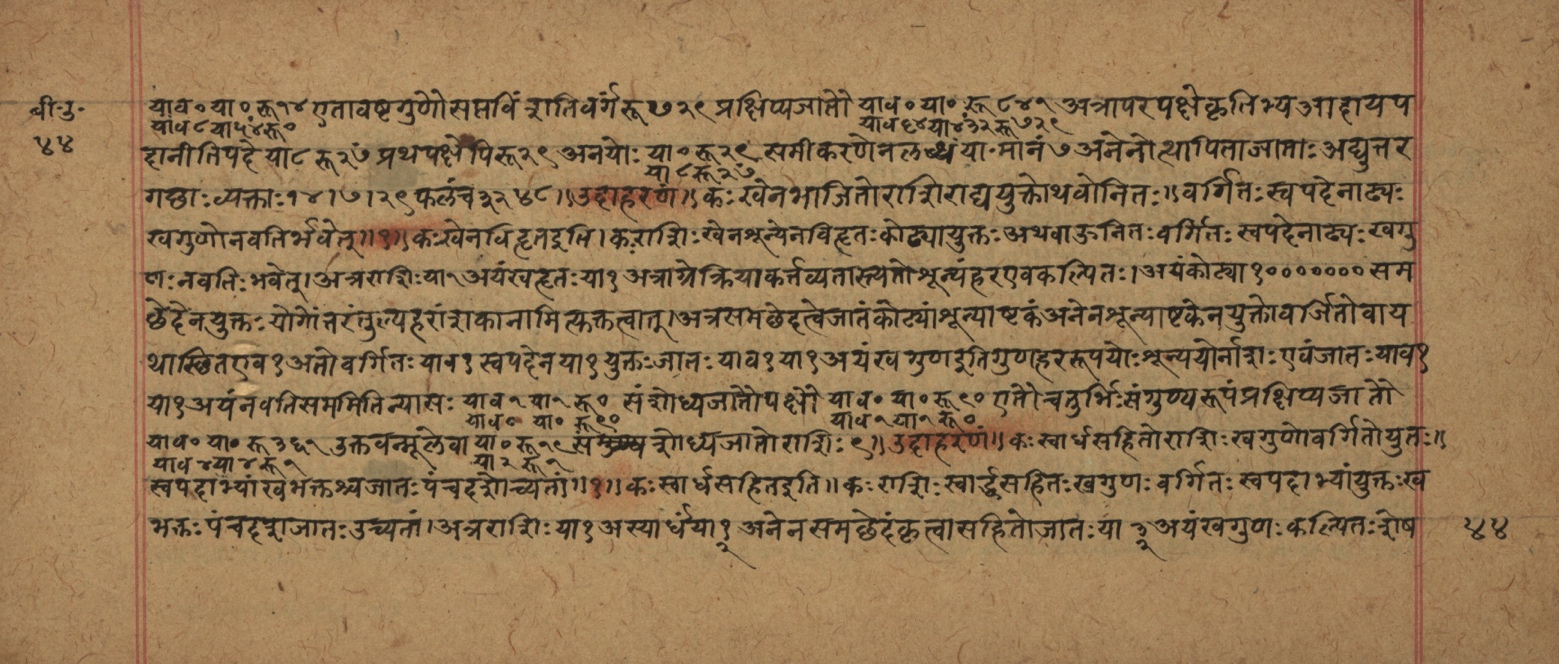 बी॰गु॰
४४
याव॰ या॰ रू१४ एतावष्टगुणौ सप्तविंशतिवर्गरू७२९ प्रक्षिप्यजातौ याव॰ या॰ रू८४१ अत्रापरपक्षेकृतिभ्यआदायप
याव८या५४रू॰ याव६४या४३२रू७२९
दानीतिपदेया८ रू२७ प्रथपक्षेपिरू२९ अनयोः या॰ रू२९ समीकरणेनलब्धंया॰मानं७ अनेनोत्थापिताजाताः अद्युत्तर
या८रू२७
गछाः व्यक्ताः१४।७।२९ फलंच३२४८॥उदाहरणं॥ कः खेनभाजितोराशिराद्ययुक्तोथवोनितः॥ वर्गितः स्वपदेनाढ्यः
खगुणोनवतिर्भवेत्॥१॥कः खेनविहृतइति। कः राशिः खेनशून्येनविहृतः कोट्यायुक्तः अथवाऊनितः वर्गितः स्वपदेनाढ्यः खगु
णः नवतिः भवेत्। अत्रराशिः या१ अयंखहृतः या१ अत्राग्रेक्रियाकर्त्तव्यतास्त्यतोशून्यंहरएवकल्पितः। अयंकोट्या१०००००००सम
छेदेनयुक्तः योगोंतरंतुल्यहरांशकानामित्युक्तत्वात्। अत्रसमछेदत्वेजातंकोट्यांशून्याष्टकंअनेनशून्याष्टकेनयुक्तोवर्जितोवाय
थास्थितएव१ अतोवर्गितः याव१ स्वपदेनया१ युक्तः जातः याव१ या१ अयंखगुणइतिगुणहररूपयोः शून्ययोर्नाशः एवंजातः याव१
या१ अयंनवतिसममितिन्यासः याव१ या१ रू॰ संशोध्यजातौपक्षौ याव॰ या॰ रू९० एतौचतुर्भिःसंगुण्यरूपंप्रक्षिप्यजातौ
याव॰ या॰ रू९० याव१या१रू॰
याव॰ या॰ रू३६१ उक्तवन्मूलेवा या॰ रू१९ संशोध्यजातोराशिः ९॥ उदाहरणं॥ कः स्वार्धसहितोराशिः खगुणोवर्गितोयुतः॥
याव४या४रू१ या२रू१
स्वपदाभ्यांखभक्तश्चजातः पंचदशोच्यतां॥१॥कः स्वार्धसहितइति॥ कः राशिः स्वार्द्धसहितः खगुणः वर्गितः स्वपदाभ्यांयुक्तः ख
भक्तः पंचदशजातः उच्यतां। अत्रराशिः या१ अस्यार्धंया१/२ अनेनसमछेदंकृत्वासहितोजातः या ३/२ अयंखगुणः कल्पितः शेष
४४